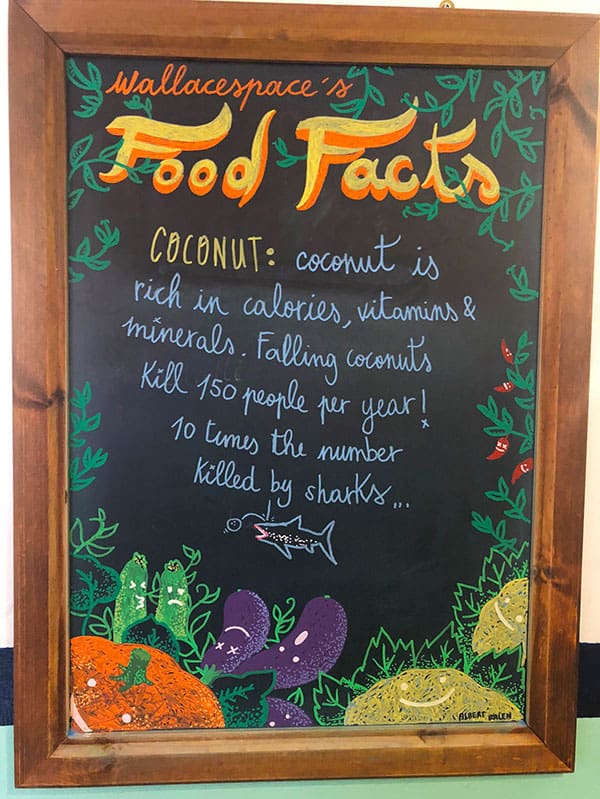 Wallacespace's
Food Facts
COCONUT: coconut is
rich in calories, vitamins &
minerals. Falling coconuts
Kill 150 people per year!
10 times the number
killed by sharks...
ALBERT